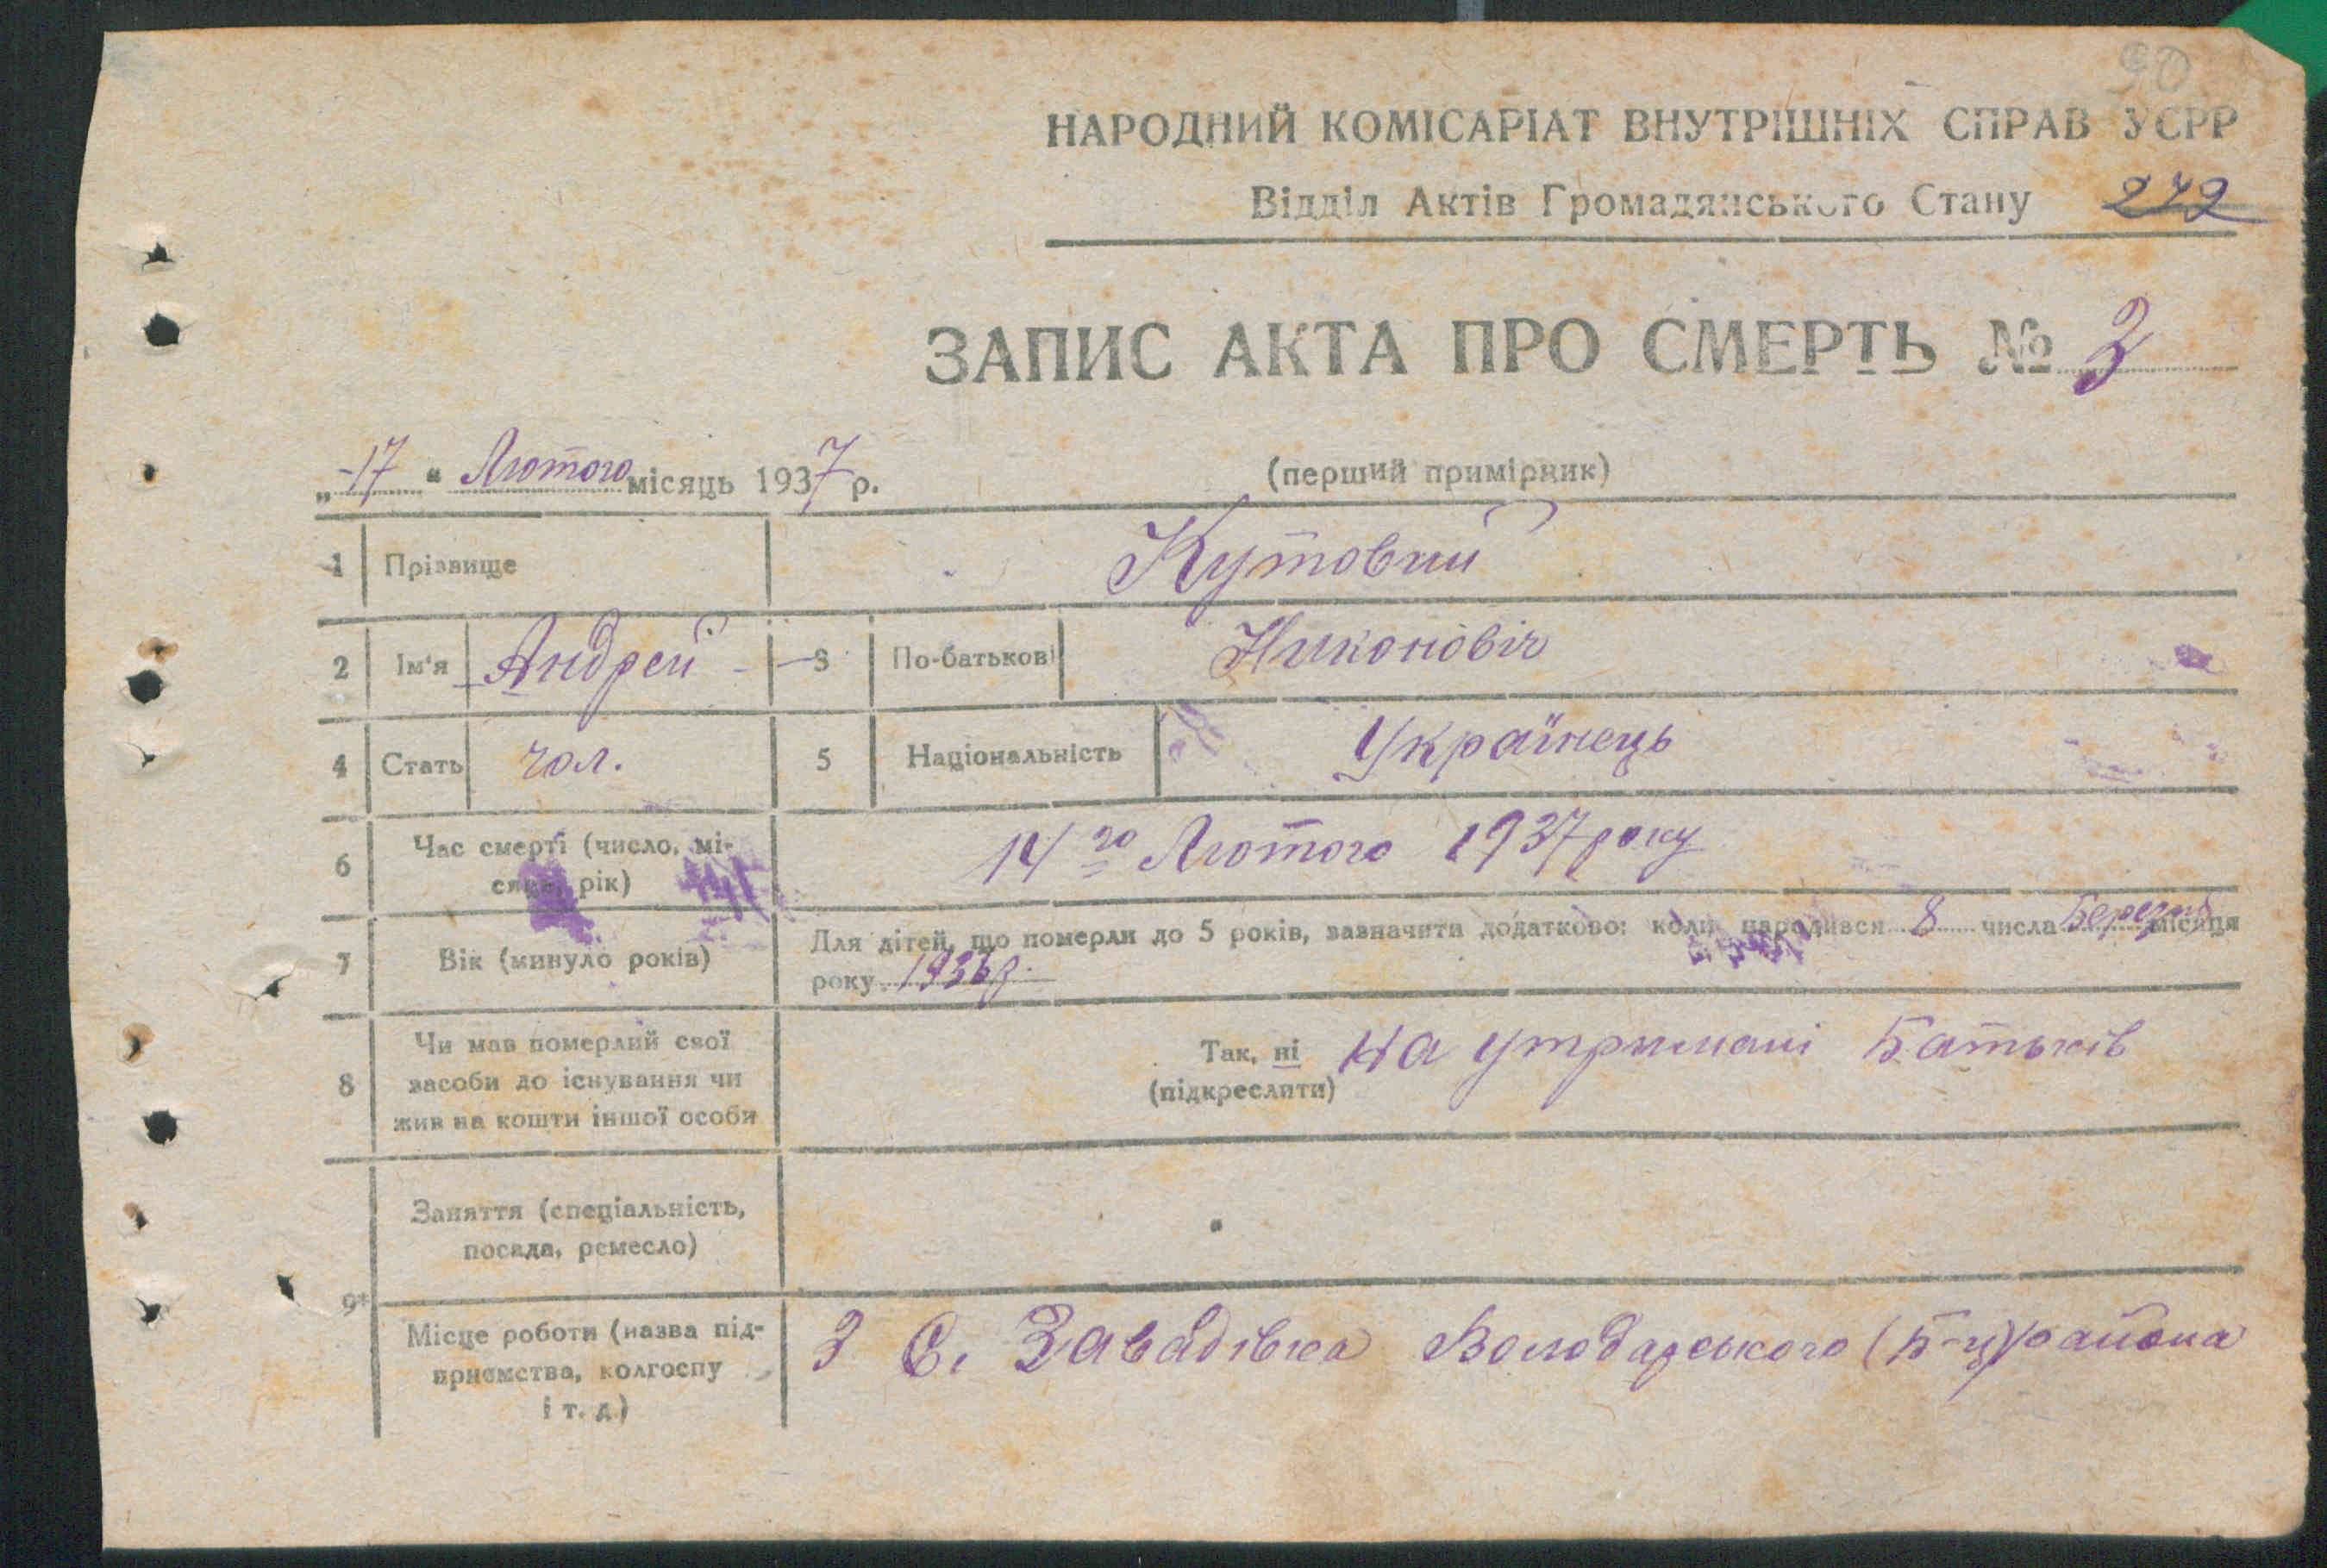 90
НАРОДНИЙ КОМІСАРІАТ ВНУТРІШНІХ СПРАВ УСРР
Відділ Актів Громадянського Стану 272
ЗАПИС АКТА ПРО СМЕРТЬ № 3
„17" Лютого місяць 1937 р. (перший примірник)
1 Прізвище Кутовий
2 Ім'я Андрей 3 По-батькові Никоновіч
4 Стать чол. 5 Національність Українець
6 Час смерті (число, мі-
сяць, рік) 14го Лютого 1937 року
7 Вік (минуло років) Для дітей, що померли до 5 років, зазначити додатково: коли народився 8 числа Березня місяця
року 1936 р.
8 Чи мав померлий свої
засоби до існування чи
жив на кошти іншої особи
Так, ні На утримані Батьків
(підкреслити)
9* Заняття (спеціальність,
посада, ремесло)
Місце роботи (назва під-
приємства, колгоспу
і т. д.)
З С. Завадівка Володарського (Б-ц) района